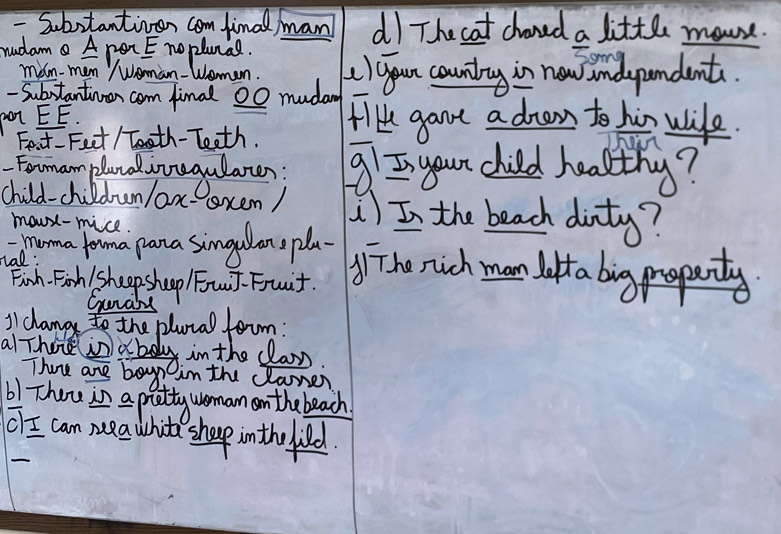 - Substantivos com final man
mudam o A por E no plural.
man-men / Woman-Women.
- Substantivos com final OO mudam
por EE.
Foot-Feet / Tooth-Teeth.
- Formam plural irregulares:
Child-children / ox-oxen /
mouse-mice.
- mesma forma para singular e plu-
ral:
Fish-Fish / Sheep sheep / Fruit-Fruit.
Exercise
1) Change to the plural form:
a) There is a boy in the class.
There are boys in the classes
b) There is a pretty woman on the beach.
c) I can see a white sheep in the fild.
d) The cat chased a little mouse.
Some
e) Your country is now independent.
f) He gave a dress to his wife.
Their
g) Is your child healthy?
i) Is the beach dirty?
j) The rich man left a big property.